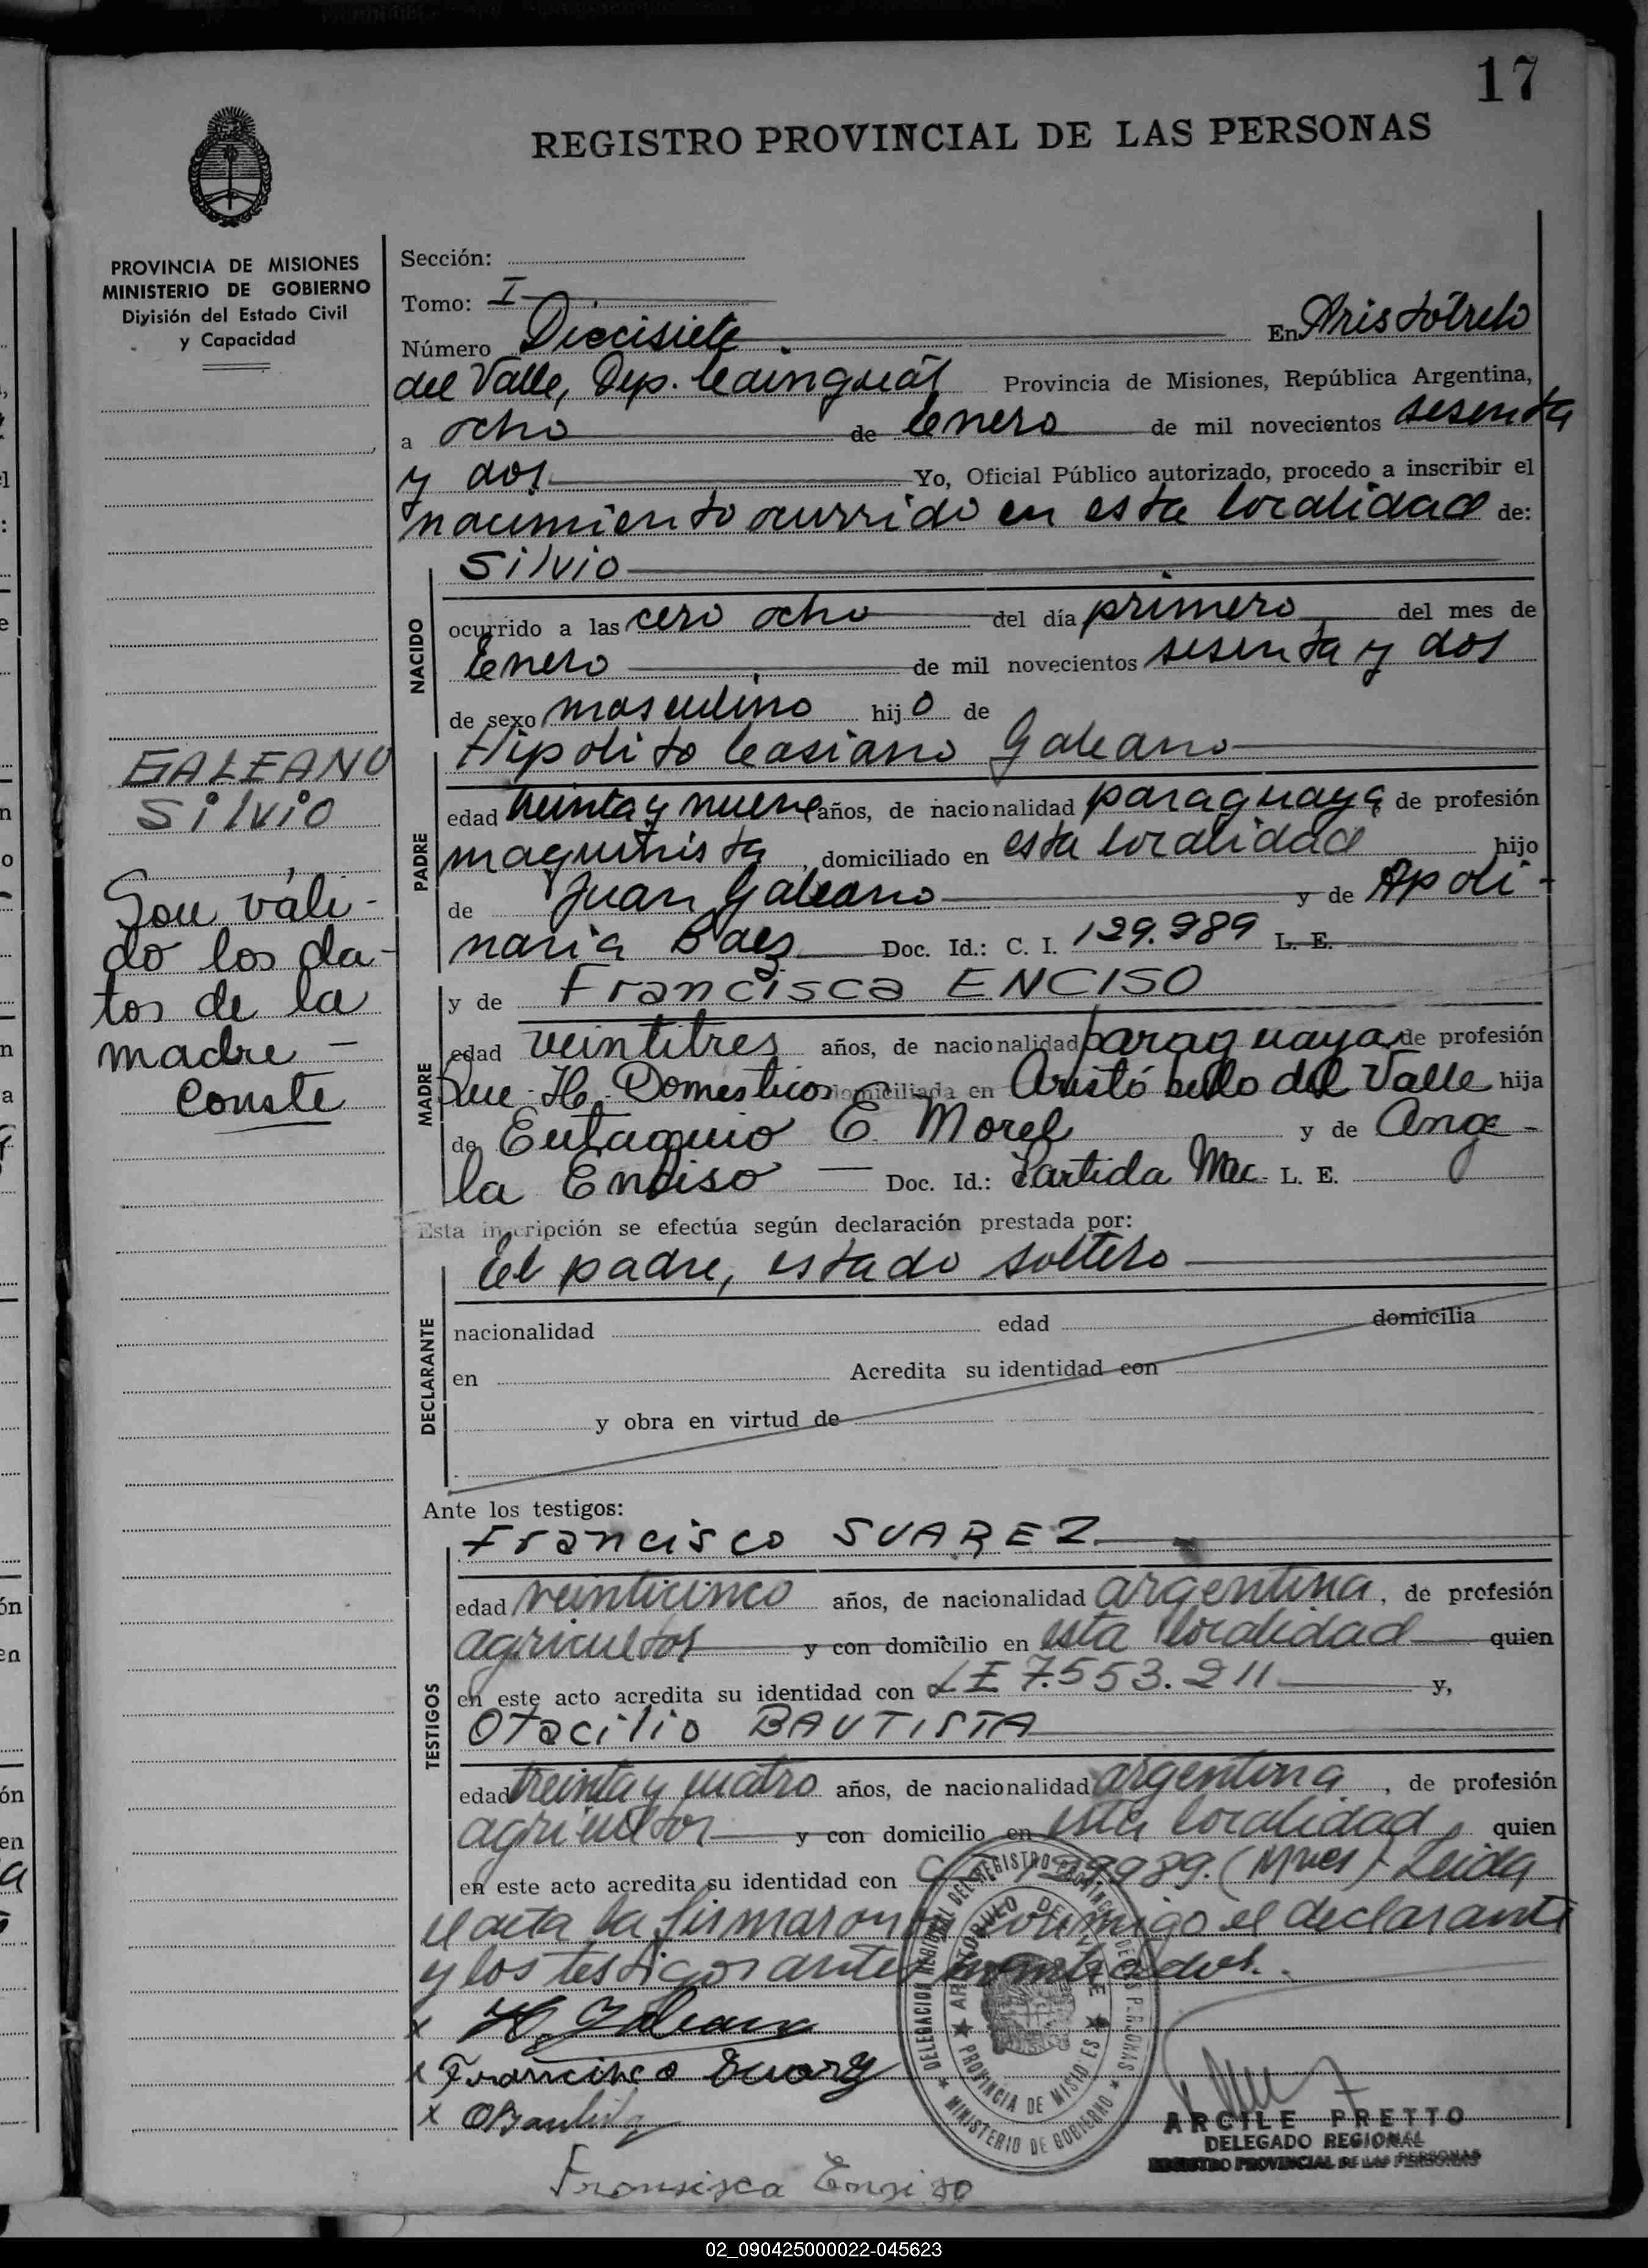 17
REGISTRO PROVINCIAL DE LAS PERSONAS
PROVINCIA DE MISIONES
MINISTERIO DE GOBIERNO
División del Estado Civil
y Capacidad
Sección:
Tomo: I
Número Diecisiete. En Aristóbulo
del Valle, Dep. Cainguás Provincia de Misiones, República Argentina,
a ocho de Enero de mil novecientos sesenta
y dos Yo, Oficial Público autorizado, procedo a inscribir el
nacimiento ocurrido en esta localidad de:
Silvio
NACIDO
ocurrido a las cero ocho del día primero del mes de
Enero de mil novecientos sesenta y dos
de sexo masculino hijo de
GALEANO
Silvio
Son váli-
do los da-
tos de la
madre -
Conste
Hipolito Casiano Galeano
PADRE
edad treinta y nueve años, de nacionalidad paraguaya de profesión
maquinista, domiciliado en esta localidad hijo
de Juan Galeano y de Apoli-
naria Baez Doc. Id.: C. I. 129.989 L. E.
MADRE
y de Francisca ENCISO
edad veintitres años, de nacionalidad paraguaya de profesión
Que H. Domesticos domiciliada en Aristóbulo del Valle hija
de Eutaquio E. Morel y de Ange-
la Enciso — Doc. Id.: Partida Nac. L. E.
Esta inscripción se efectúa según declaración prestada por:
El padre, estado soltero
DECLARANTE
nacionalidad edad domicilia
en Acredita su identidad con
y obra en virtud de
Ante los testigos:
Francisco SUAREZ
TESTIGOS
edad veinticinco años, de nacionalidad argentina, de profesión
agricultor y con domicilio en esta localidad quien
en este acto acredita su identidad con LE 7.553.211 y,
Otacilio BAUTISTA
edad treinta y cuatro años, de nacionalidad argentina, de profesión
agricultor y con domicilio en esta localidad, quien
en este acto acredita su identidad con (Mnes) Leida
el acta la firmaron conmigo el declarante
y los testigos antes nombrados.
x H. Galeano
x Francisco Suarez
x OBautista
DELEGACION REGIONAL DEL REGISTRO PROVINCIAL DE LAS PERSONAS
MINISTERIO DE GOBIERNO
ARISTOBULO DEL VALLE
PROVINCIA DE MISIONES
ARCILE PRETTO
DELEGADO REGIONAL
REGISTRO PROVINCIAL DE LAS PERSONAS
Fransisca Ensiso
02_090425000022-045623